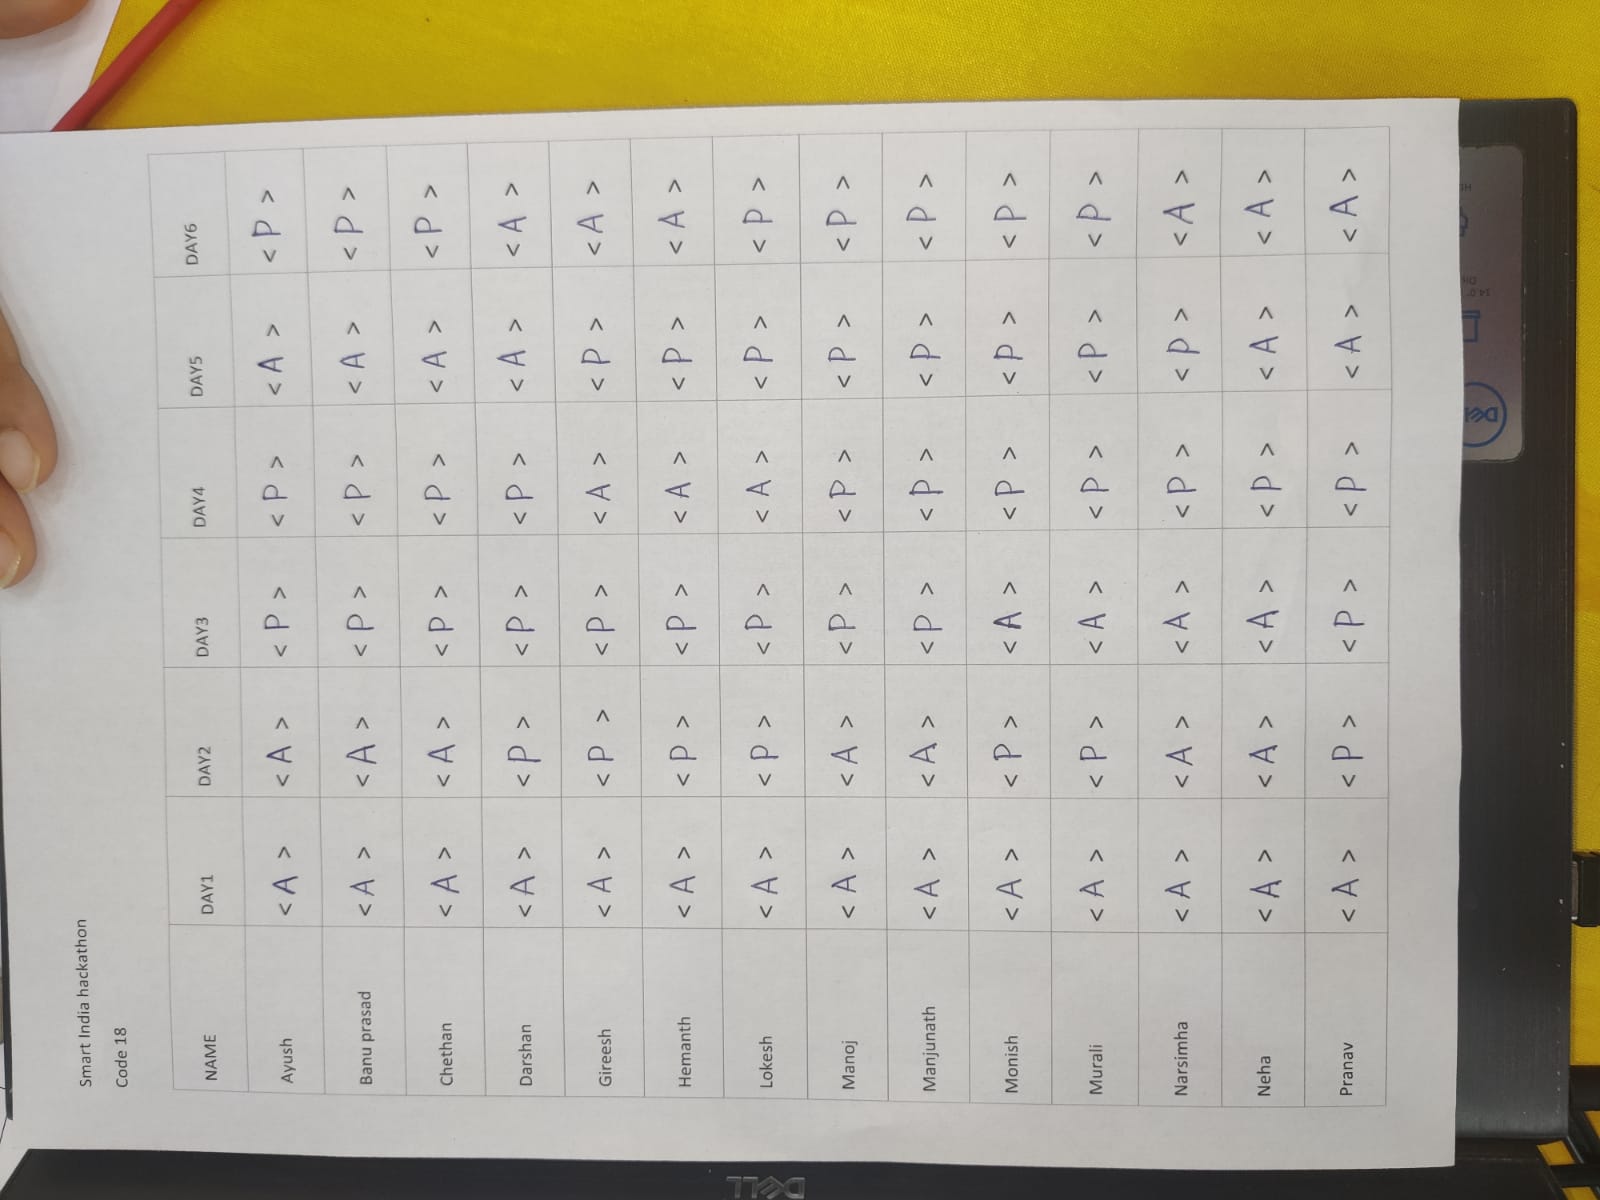 Smart India hackathon
Code 18
NAME DAY1 DAY2 DAY3 DAY4 DAY5 DAY6
Ayush < A > < A > < P > < P > < A > < P >
Banu prasad < A > < A > < P > < P > < A > < P >
Chethan < A > < A > < P > < P > < A > < P >
Darshan < A > < P > < P > < P > < A > < A >
Gireesh < A > < P > < P > < A > < P > < A >
Hemanth < A > < P > < P > < A > < P > < A >
Lokesh < A > < P > < P > < A > < P > < P >
Manoj < A > < A > < P > < P > < P > < P >
Manjunath < A > < A > < P > < P > < P > < P >
Monish < A > < P > < A > < P > < P > < P >
Murali < A > < P > < A > < P > < P > < P >
Narsimha < A > < A > < A > < P > < P > < A >
Neha < A > < A > < A > < P > < A > < A >
Pranav < A > < P > < P > < P > < A > < A >
DELL
DELL
14.0"